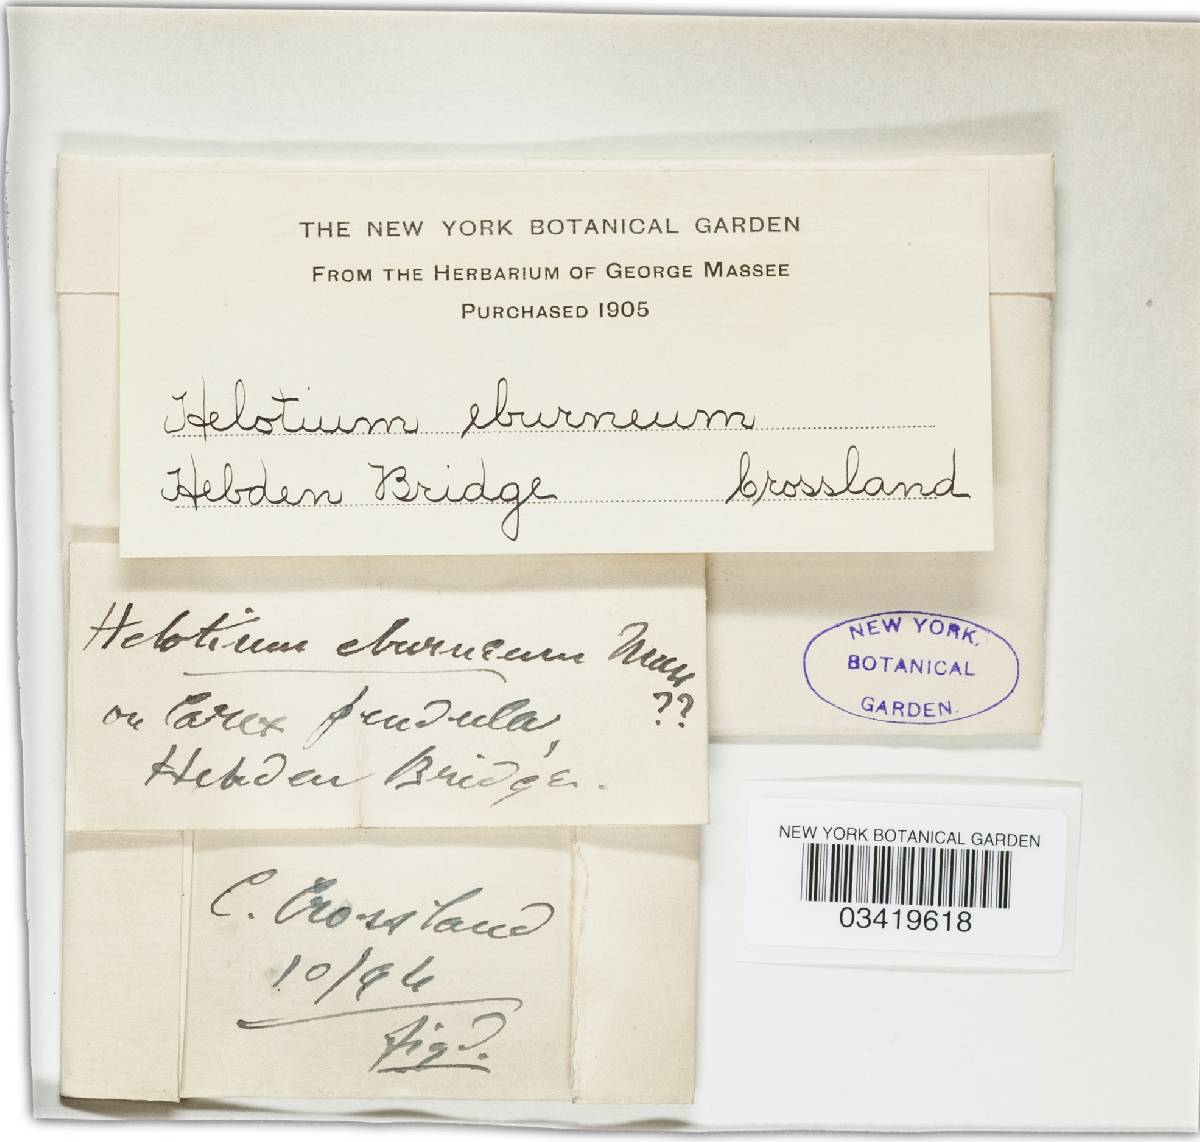 THE NEW YORK BOTANICAL GARDEN
FROM THE HERBARIUM OF GEORGE MASSEE
PURCHASED 1905
Helotium eburneum
Hebden Bridge Crossland
Helotium eburneum
??
on Carex pendula,
Hebden Bridge.
NEW YORK,
BOTANICAL
GARDEN.
NEW YORK BOTANICAL GARDEN
03419618
C. Crossland
10/96
figd.